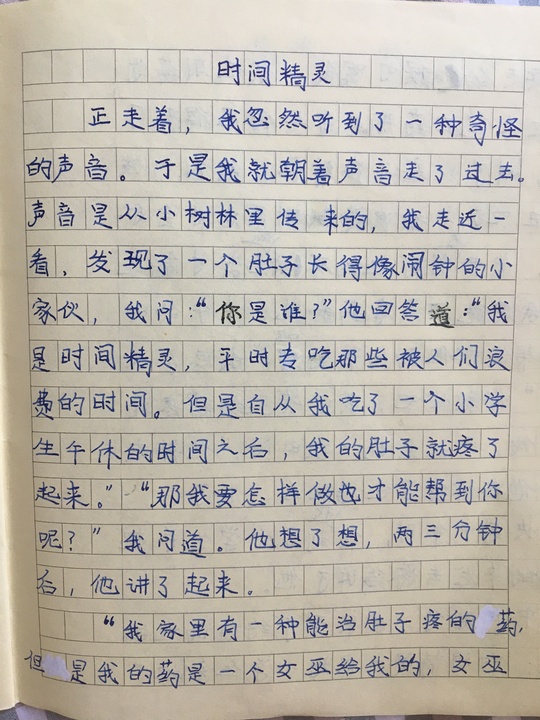 时间精灵
正走着，我忽然听到了一种奇怪
的声音。于是我就朝着声音走了过去。
声音是从小树林里传来的，我走近一
看，发现了一个肚子长得像闹钟的小
家伙，我问：“你是谁？”他回答道：“我
是时间精灵，平时专吃那些被人们浪
费的时间。但是自从我吃了一个小学
生午休的时间之后，我的肚子就疼了
起来。”“那我要怎样做也才能帮到你
呢？”我问道。他想了想，两三分钟
后，他讲了起来。
“我家里有一种能治肚子疼的药，
但是我的药是一个女巫给我的，女巫